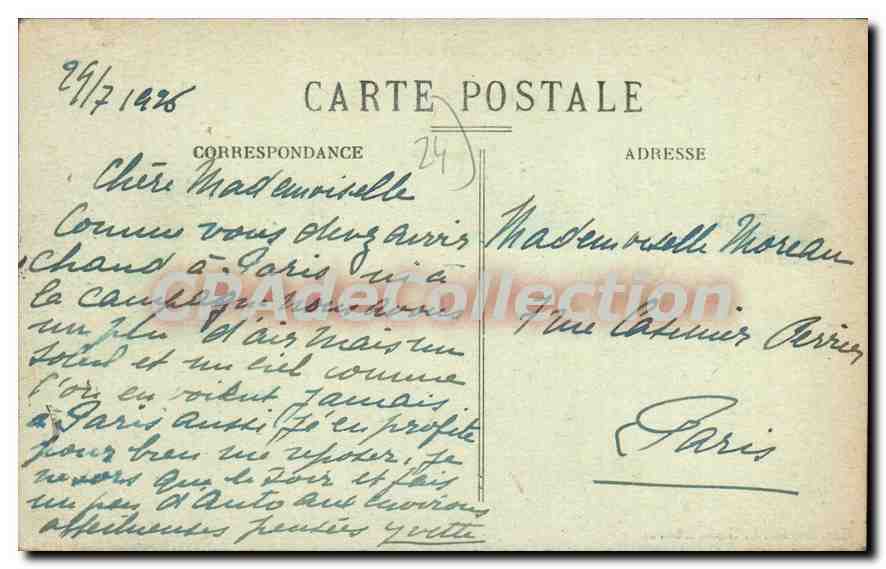 29/7 1926
CARTE POSTALE
CORRESPONDANCE
24
ADRESSE
Chère Mademoiselle
Comme vous devez avoir
chaud à Paris ici à
la campagne nous avons
un peu d'air mais un
soleil et un ciel comme
l'on en voient jamais
a Paris aussi j'e en profite
pour bien me reposer, je
ne sors que le soir et fais
un peu d'auto aux environs
affectueuses pensées Yvette
Mademoiselle Moreau
7 rue Casimir Perrier
Paris
CPAdeCollection.com